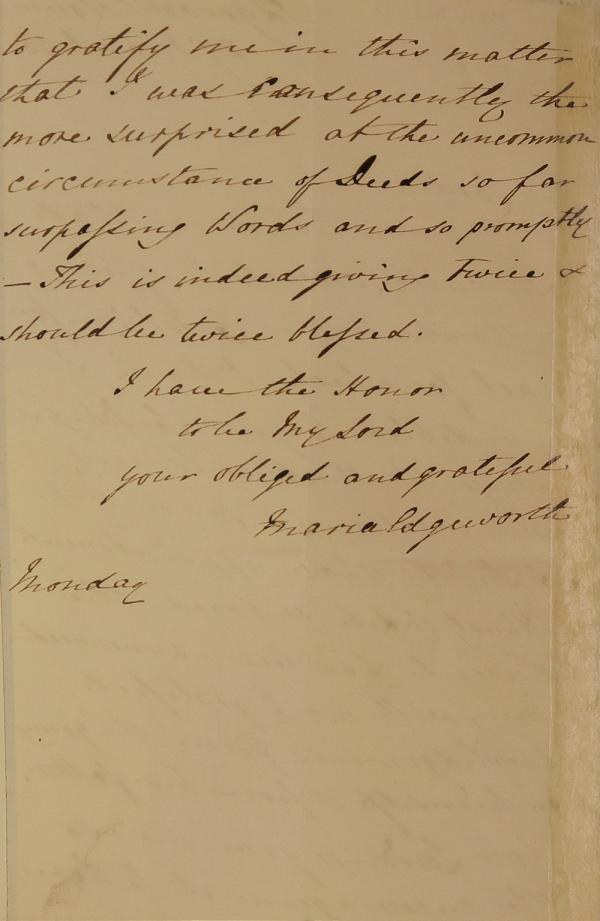 to gratify me in this matter
that I was consequently the
more surprised at the uncommon
circumstance of Deeds so far
surpaſsing Words and so promptly
— This is indeed giving twice &
should be twice bleſsed.
I have the Honor
to be My Lord
your obliged and grateful
Maria Edgeworth
Monday